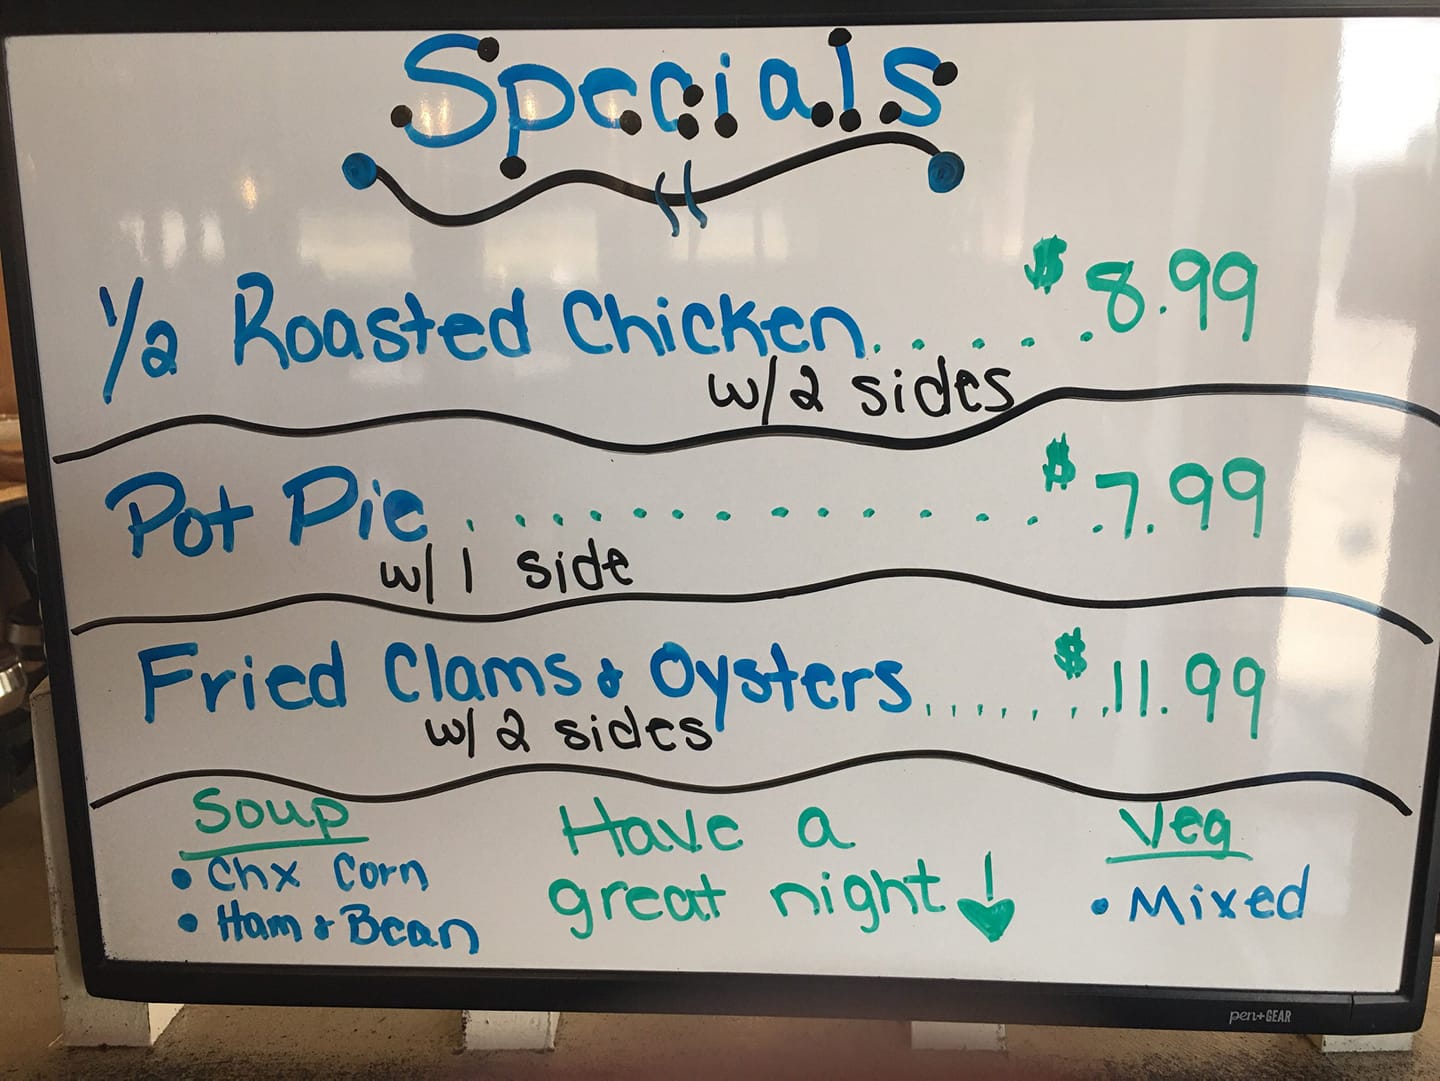 Specials
1/2 Roasted Chicken...... $8.99
w/2 sides
Pot Pie............... $7.99
w/1 side
Fried Clams & Oysters........ $11.99
w/2 sides
Soup
• Chx Corn
• Ham & Bean
Have a
great night!
Veg
• Mixed
pen+GEAR